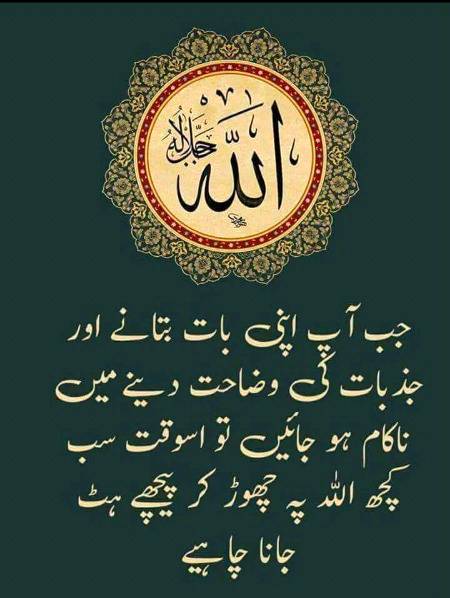 الله جل جلاله
جب آپ اپنی بات بتانے اور
جذبات کی وضاحت دینے میں
ناکام ہو جائیں تو اسوقت سب
کچھ اللہ پہ چھوڑ کر پیچھے ہٹ
جانا چاہیے